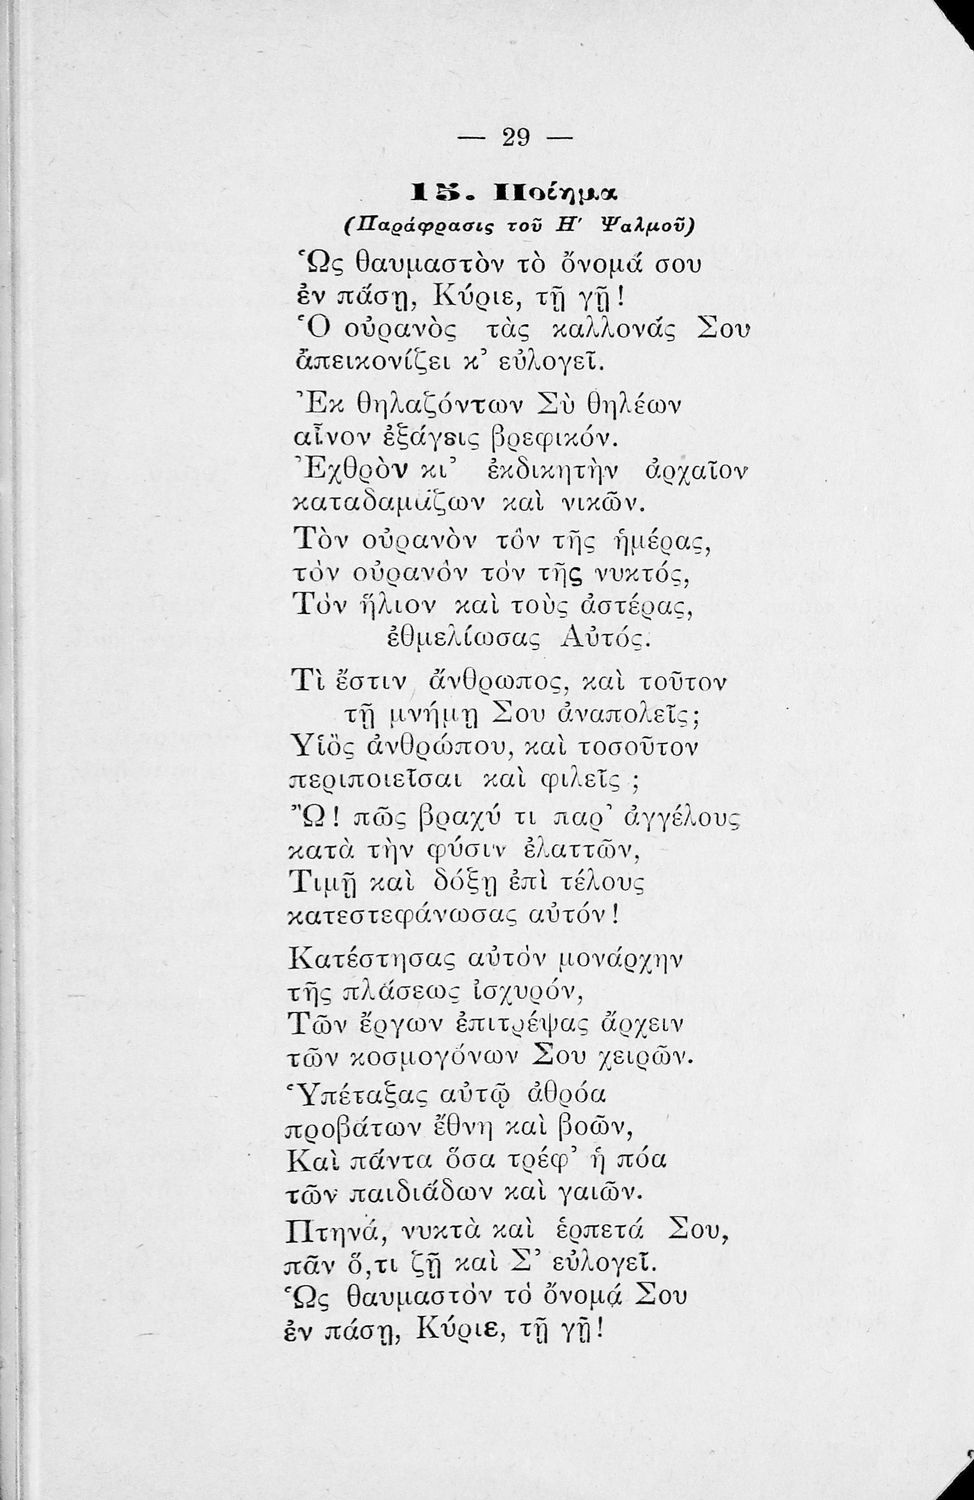 — 29 —
15. Ποίημα
(Παράφρασις τοῦ Η' Ψαλμοῦ)
Ὡς θαυμαστὸν τὸ ὄνομά σου
ἐν πάσῃ, Κύριε, τῇ γῇ!
Ὁ οὐρανὸς τὰς καλλονάς Σου
ἀπεικονίζει κ' εὐλογεῖ.
Ἐκ θηλαζόντων Σὺ θηλέων
αἶνον ἐξάγεις βρεφικόν.
Ἐχθρὸν κι' ἐκδικητὴν ἀρχαῖον
καταδαμάζων καὶ νικῶν.
Τὸν οὐρανὸν τὸν τῆς ἡμέρας,
τόν οὐρανόν τόν τῆς νυκτός,
Τόν ἥλιον καὶ τοὺς ἀστέρας,
ἐθμελίωσας Αὐτός.
Τὶ ἔστιν ἄνθρωπος, καὶ τοῦτον
τῇ μνήμῃ Σου ἀναπολεῖς;
Υἱὸς ἀνθρώπου, καὶ τοσοῦτον
περιποιεῖσαι καὶ φιλεῖς ;
Ὢ! πῶς βραχύ τι παρ' ἀγγέλους
κατὰ τὴν φύσιν ἐλαττῶν,
Τιμῇ καὶ δόξῃ ἐπὶ τέλους
κατεστεφάνωσας αὐτόν!
Κατέστησας αὐτόν μονάρχην
τῆς πλάσεως ἰσχυρόν,
Τῶν ἔργων ἐπιτρέψας ἄρχειν
τῶν κοσμογόνων Σου χειρῶν.
Ὑπέταξας αὐτῷ ἀθρόα
προβάτων ἔθνη καὶ βοῶν,
Καὶ πάντα ὅσα τρέφ' ἡ πόα
τῶν παιδιάδων καὶ γαιῶν.
Πτηνά, νυκτὰ καὶ ἑρπετά Σου,
πᾶν ὅ,τι ζῇ καὶ Σ' εὐλογεῖ.
Ὡς θαυμαστόν τό ὄνομά Σου
ἐν πάσῃ, Κύριε, τῇ γῇ!